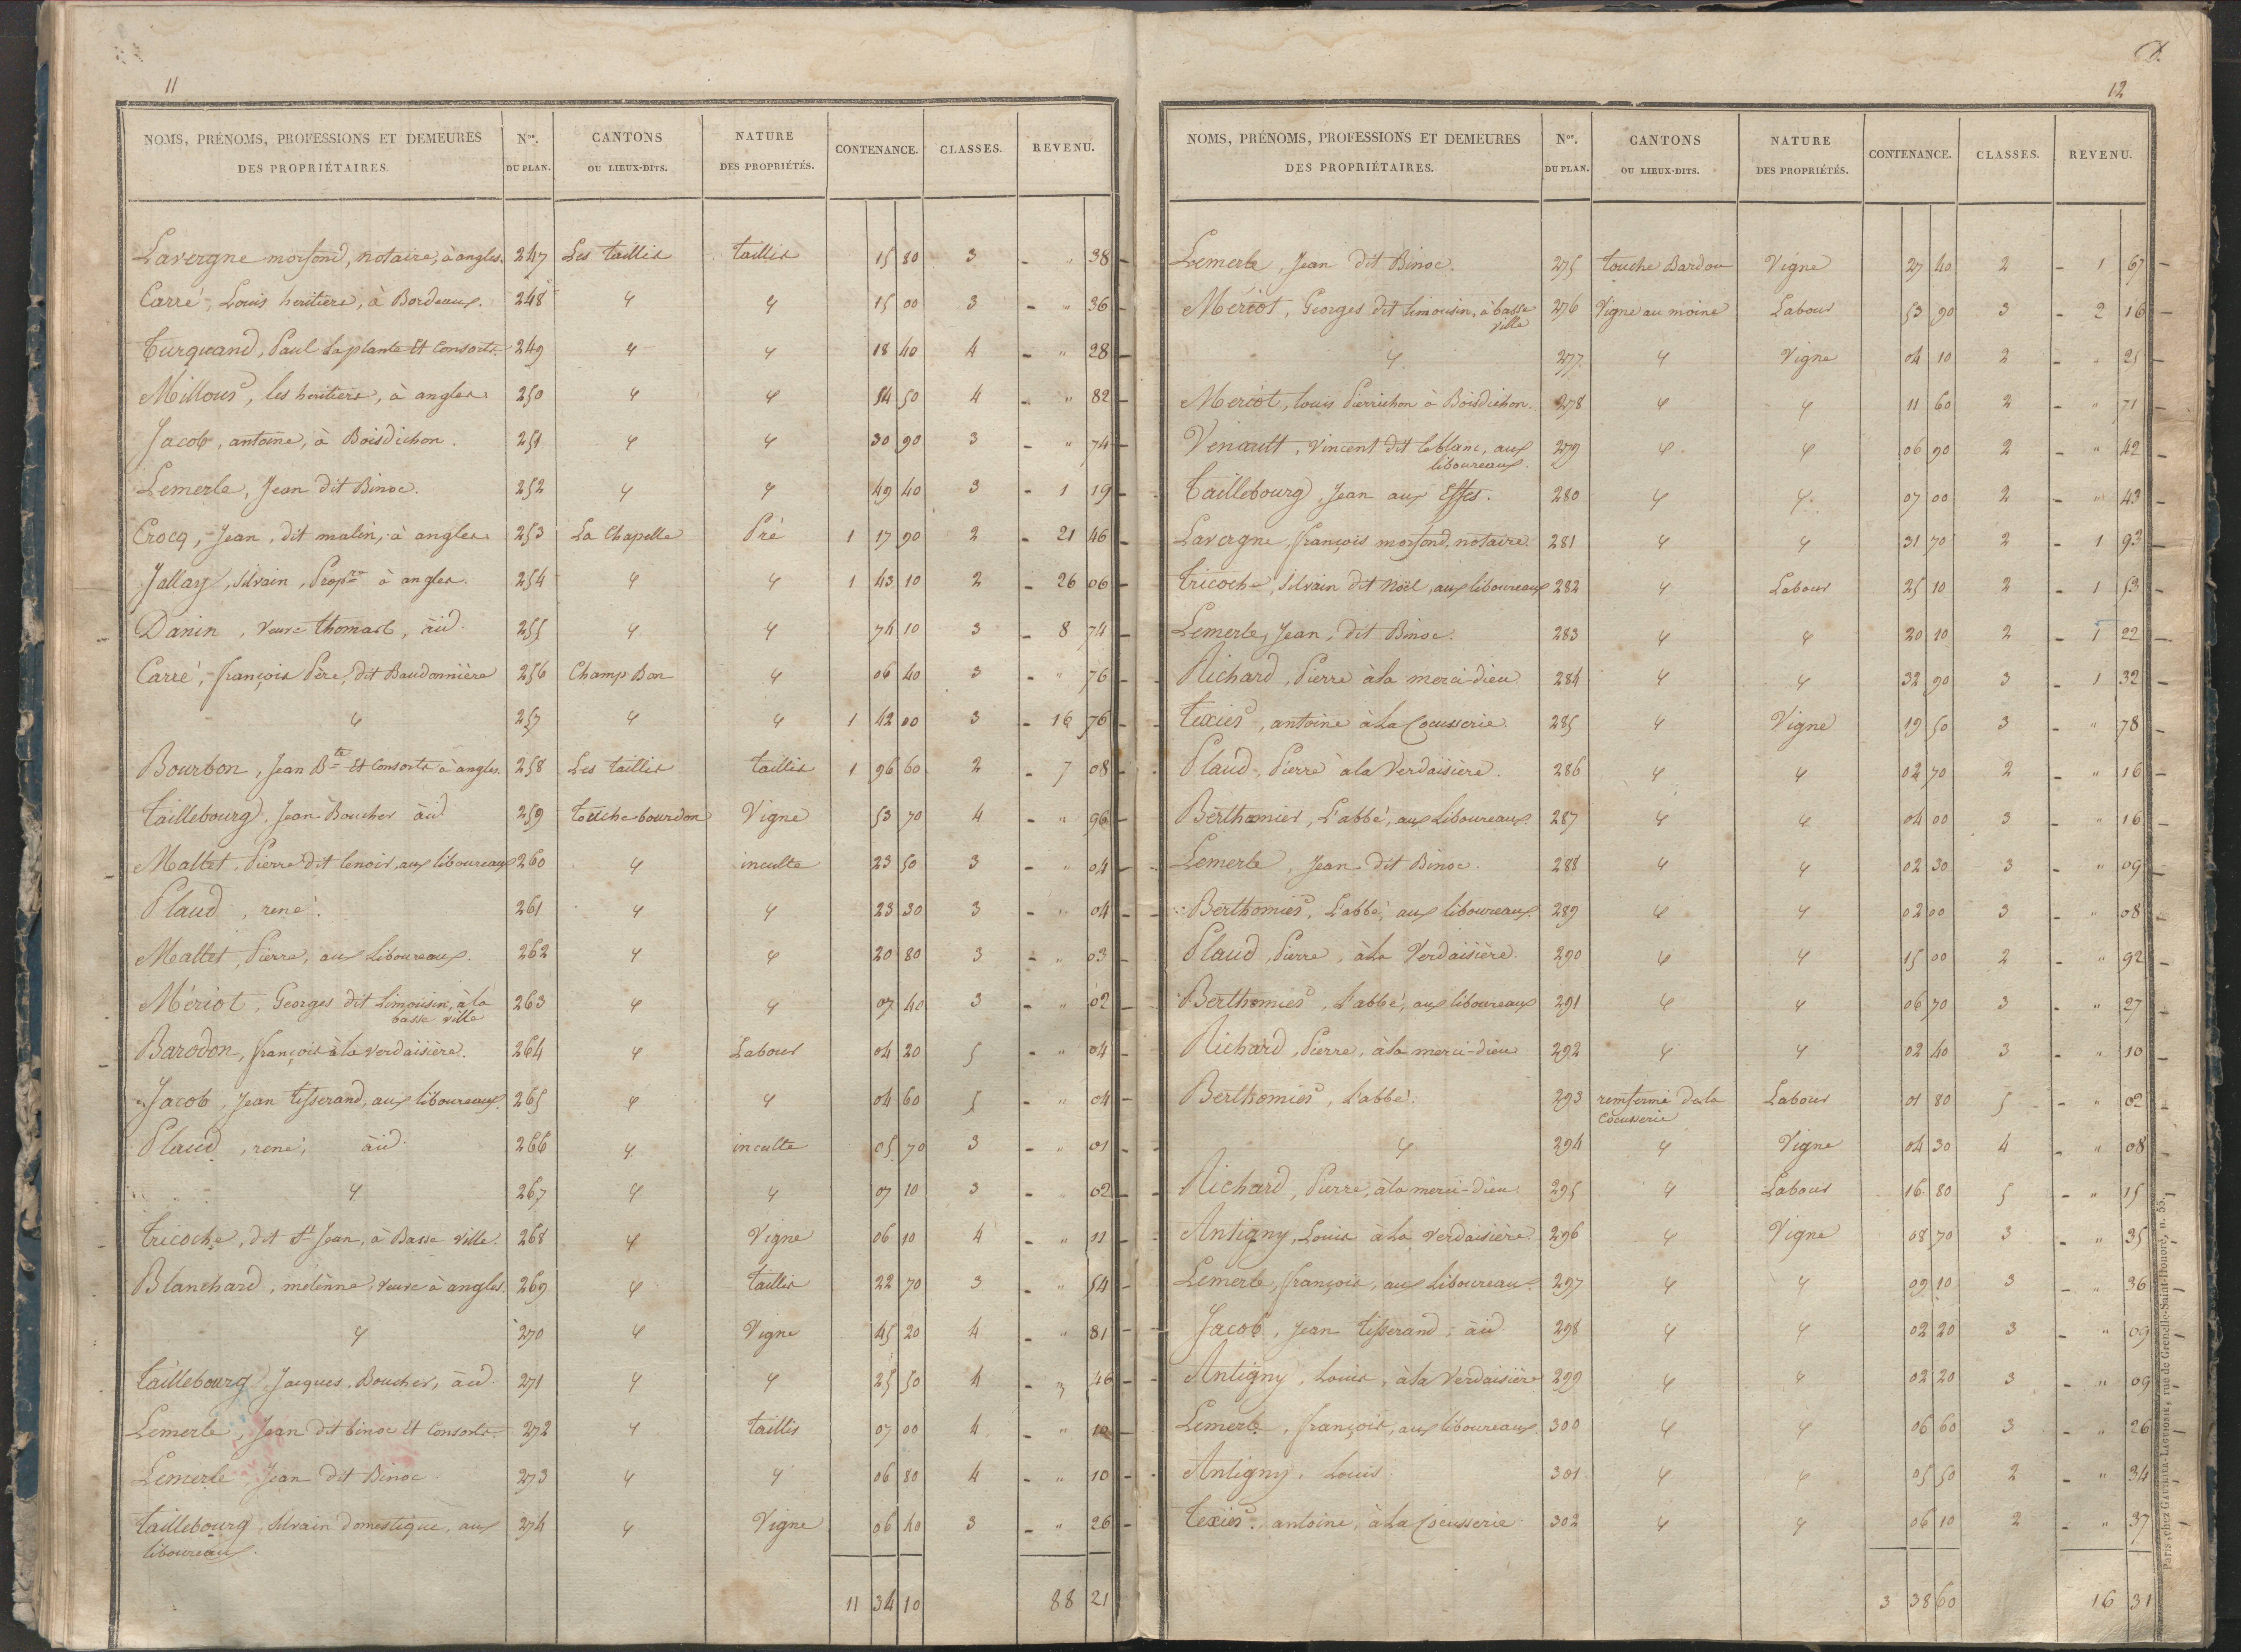 11
NOMS, PRÉNOMS, PROFESSIONS ET DEMEURES DES PROPRIÉTAIRES. Nos. DU PLAN. CANTONS OU LIEUX-DITS. NATURE DES PROPRIÉTÉS. CONTENANCE. CLASSES. REVENU.
Lavergne morfond, notaire, à angles. 247 Les taillis taillis 15 80 3 - " 38 -
Carré, Louis heritiers, à Bordeaux. 248 " " 15 00 3 - " 36 -
Turquand, Paul Laplante Et Consorts. 249 " " 18 40 4 - " 28 -
Millous, les heritiers, à angles 250 " " 54 50 4 - " 82 -
Jacob, antoine, à Boisdichon. 251 " " 30 90 3 - " 74 -
Lemerle, Jean dit Binoc. 252 " " 49 40 3 - 1 19 -
Crocq, Jean, dit malin, à angles 253 La Chapelle Pré 1 17 90 2 - 21 46 -
Jallay, Silvain, Propre à angles. 254 " " 1 43 10 2 - 26 06 -
Danin, veuve thomast, àid. 255 " " 74 10 3 - 8 74 -
Carré, françois Père, dit Baudonnière 256 Champ Bon " 06 40 3 - " 76 -
" 257 " " 1 42 00 3 - 16 76 -
Bourbon, Jean Bte Et Consorts à angles. 258 Les taillis taillis 1 96 60 2 - 7 08 -
taillebourg, Jean Boucher àid 259 touche bourdon Vigne 53 70 4 - " 96 -
Mallet, Pierre dit lenoir, aux liboureaux 260 " inculte 23 50 3 - " 04 -
Plaud, rené. 261 " " 23 30 3 - " 04 -
Mallet, Pierre, aux Liboureaux. 262 " " 20 80 3 - " 03 -
Mériot, Georges dit Limousin, à la 263 " " 07 40 3 - " 02 -
basse ville
Barodon, françois à la verdaisière. 264 " Labour 04 20 5 - " 04 -
Jacob, Jean tisserand, aux liboureaux. 265 " " 04 60 5 - " 04 -
Plaud, rené, àid. 266 " inculte 05 70 3 - " 01 -
" 267 " " 07 10 3 - 02 -
tricoche, dit St Jean, à Basse ville. 268 " Vigne 06 10 4 - " 11 -
Blanchard, mélènne, veuve à angles. 269 " taillis 22 70 3 - " 54 -
" 270 " Vigne 45 20 4 - " 81 -
taillebourg, Jacques, Boucher, àid. 271 " " 25 50 4 - " 46 -
Lemerle, Jean dit binoc Et Consorts. 272 " taillis 07 00 4 - " 10 -
Lemerle, Jean dit Binoc. 273 " " 06 80 4 - " 10 -
taillebourg, silvain domestique, aux 274 " Vigne 06 40 3 - " 26 -
liboureaux.
11 34 10 88 21
12
NOMS, PRÉNOMS, PROFESSIONS ET DEMEURES DES PROPRIÉTAIRES. Nos. DU PLAN. CANTONS OU LIEUX-DITS. NATURE DES PROPRIÉTÉS. CONTENANCE. CLASSES. REVENU.
Lemerle, Jean dit Binoc. 275 touche Bardou Vigne 27 40 2 - 1 67 -
Mériot, Georges dit limousin, à basse 276 Vigne au moine Labour 53 90 3 - 2 16 -
ville
" 277 " Vigne 04 10 2 - " 25 -
Meriot, louis Pierrichon à Boisdichon. 278 " " 11 60 2 - " 71 -
Venault, Vincent dit leblanc, aux 279 " " 06 90 2 - " 42 -
liboureaux.
taillebourg, Jean aux Effes. 280 " " 07 00 2 - " 43 -
Lavergne, françois morfond, notaire. 281 " " 31 70 2 - 1 93 -
tricoche, Silvain dit Noël, aux liboureaux 282 " Labour 25 10 2 - 1 53 -
Lemerle, Jean, dit Binoc. 283 " " 20 10 2 - 1 22 -
Richard, Pierre à la merci-dieu 284 " " 32 90 3 - 1 32 -
texier, antoine à la Cocusserie 285 " Vigne 19 50 3 - " 78 -
Plaud, Pierre à la Verdaisière. 286 " " 02 70 2 - " 16 -
Berthomier, L'abbé, aux Liboureaux. 287 " " 04 00 3 - " 16 -
Lemerle, Jean dit Binoc. 288 " " 02 30 3 - " 09 -
Berthomier, L'abbé, aux liboureaux. 289 " " 02 00 3 - " 08 -
Plaud, Pierre, à la Verdaisière. 290 " " 15 00 2 - " 92 -
Berthomier, L'abbé, aux liboureaux 291 " " 06 70 3 - " 27 -
Richard, Pierre, à la merci-dieu 292 " " 02 40 3 - " 10 -
Berthomier, L'abbé. 293 remfermé de la Labour 01 80 5 - " 02 -
Cocusserie
" 294 " Vigne 04 30 4 - " 08 -
Richard, Pierre, à la merci-dieu. 295 " Labour 16 80 5 - " 15 -
Antigny, Louis à la verdaisière. 296 " Vigne 08 70 3 - " 35 -
Lemerle, françois, aux Liboureaux. 297 " " 09 10 3 - " 36 -
Jacob, Jean tisserand, àid 298 " " 02 20 3 - " 09 -
Antigny, Louis, à la Verdaisière 299 " " 02 20 3 - " 09 -
Lemerle, françois, aux liboureaux. 300 " " 06 60 3 - " 26 -
Antigny, Louis. 301 " " 05 50 2 - " 34 -
texier, antoine, à la Cocusserie 302 " " 06 10 2 - " 37 -
3 38 60 16 31
Paris, chez GAUTHIER-LAGUIONIE, rue de Grenelle-Saint-Honoré, n. 55.